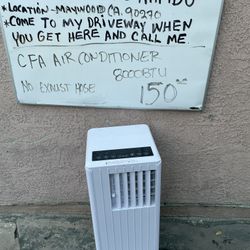 *LOCATION-MAYWOOD CA. 90270
*COME TO MY DRIVEWAY WHEN
YOU GET HERE AND CALL ME
CFA AIR CONDITIONER
8000BTU
NO EXHAUST HOSE 150